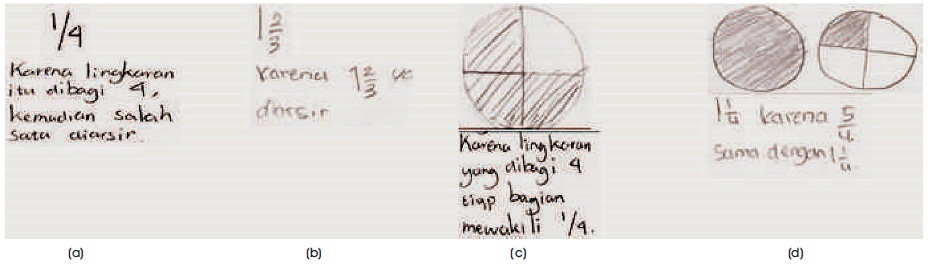 1/4
Karena lingkaran
itu dibagi 4,
kemudian salah
satu diarsir.
(a)
1 2/3
Karena 1 2/3
diarsir
(b)
Karena lingkaran
yang dibagi 4
tiap bagian
mewakili 1/4.
(c)
1 1/4 karena 5/4
sama dengan 1 1/4.
(d)